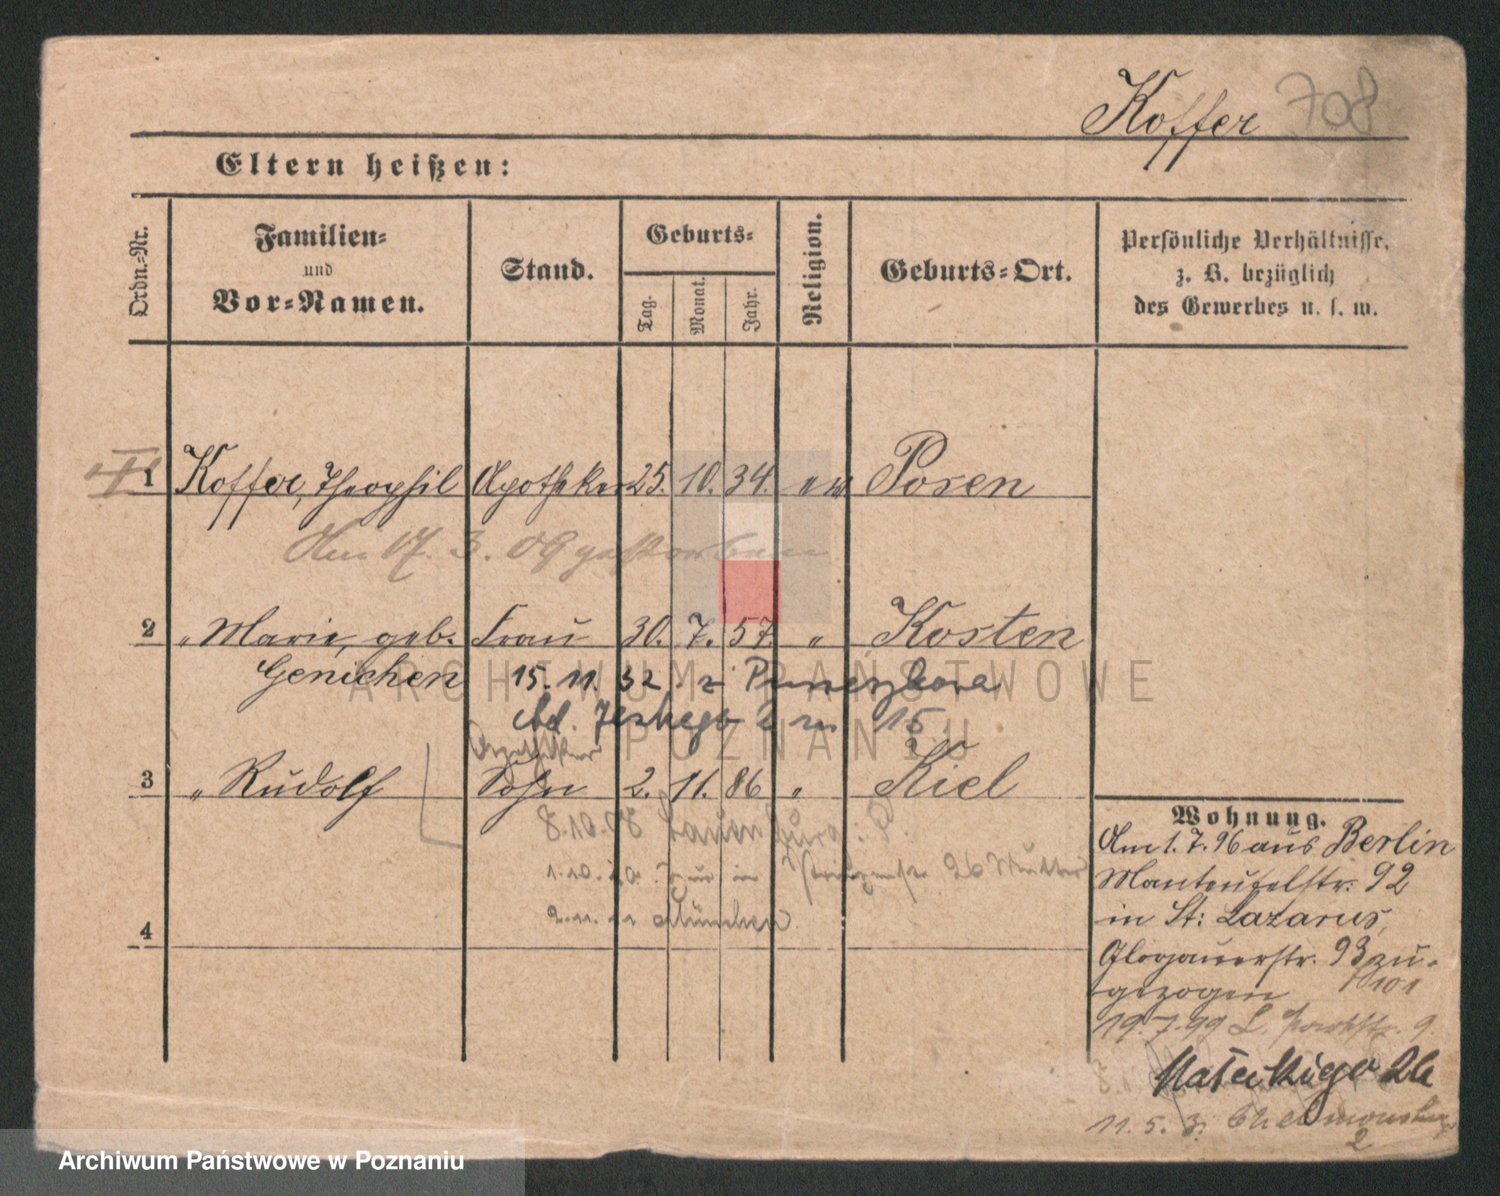 Koffer 708
Eltern heißen:
Ordn.-Nr.
Familien-
und
Vor-Namen.
Stand.
Geburts-
Tag.
Monat.
Jahr.
Religion.
Geburts-Ort.
Persönliche Verhältnisse,
z. B. bezüglich
des Gewerbes u. s. w.
1 Koffer, Theophil Apotheker 25. 10. 34. ev Posen
Am 17. 3. 09 gestorben
2 " Marie, geb. Frau 30. 7. 57. " Kosten
Genichen 15. 11. 32 z
15
Apotheker
3 " Rudolf Sohn 2. 11. 86 " Kiel
8.10.08 Lauenburg i. P.
1.10. in 26 Mutter
2.11.11 München
4
Wohnung.
Am 1.7.96 aus Berlin
Manteufelstr. 92
in St: Lazarus,
Glogauerstr. 93 zu-
gezogen 101
19.7.99 L. 9
Matejkiego
11. 5. 3.
2
ARCHIWUM PAŃSTWOWE
POZNANIU
Archiwum Państwowe w Poznaniu